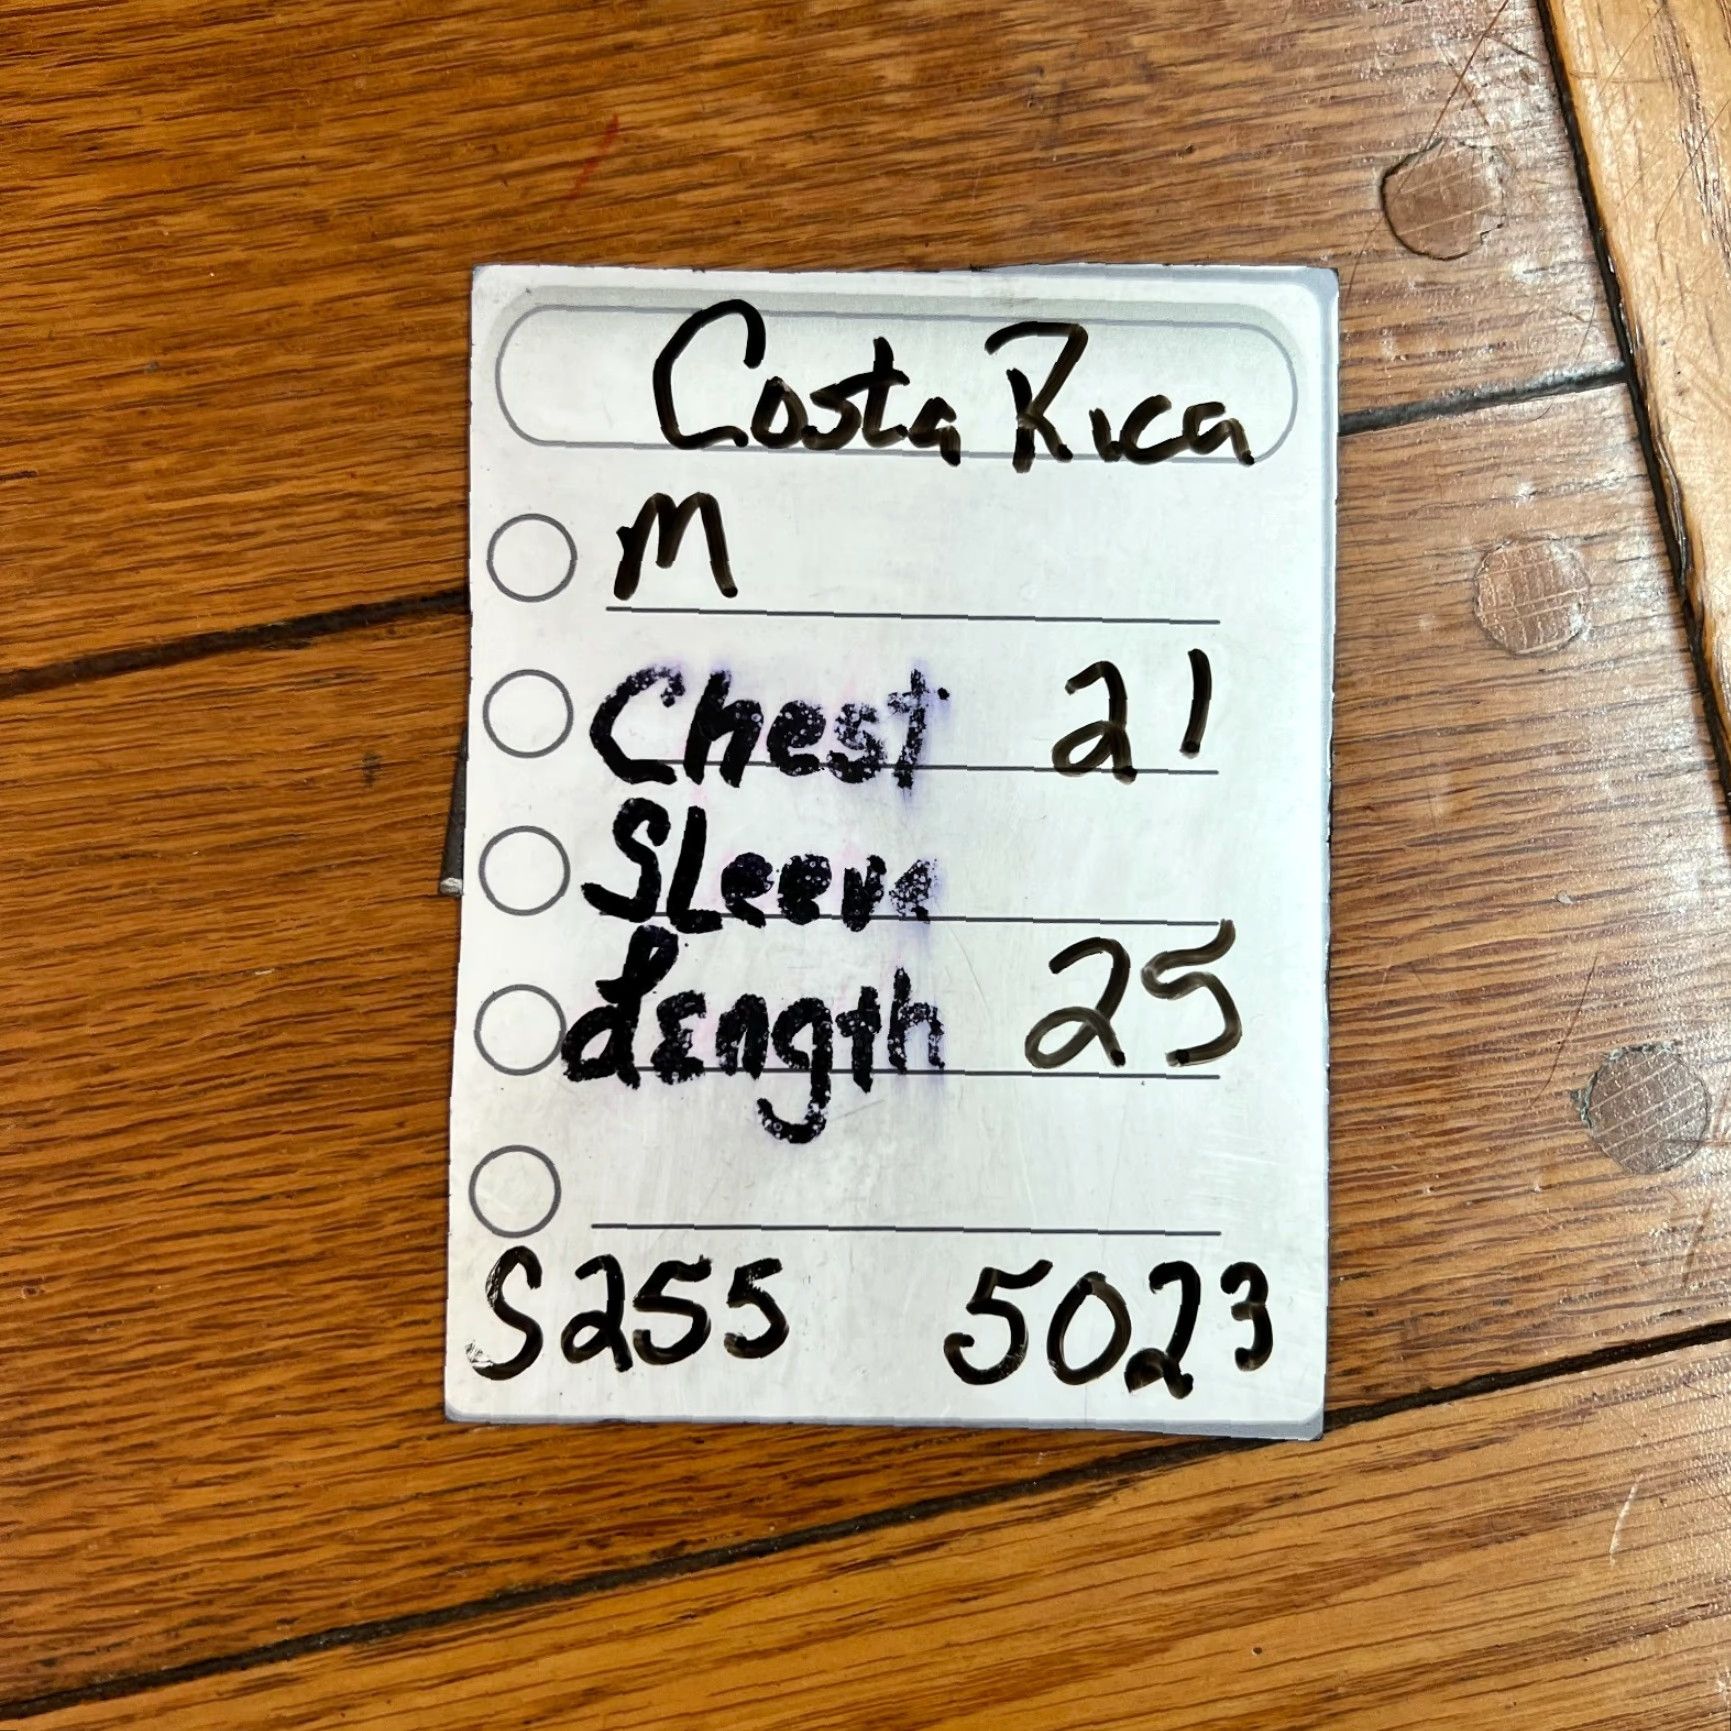 Costa Rica
M
Chest 21
SLeeve
Length 25
S255 5023